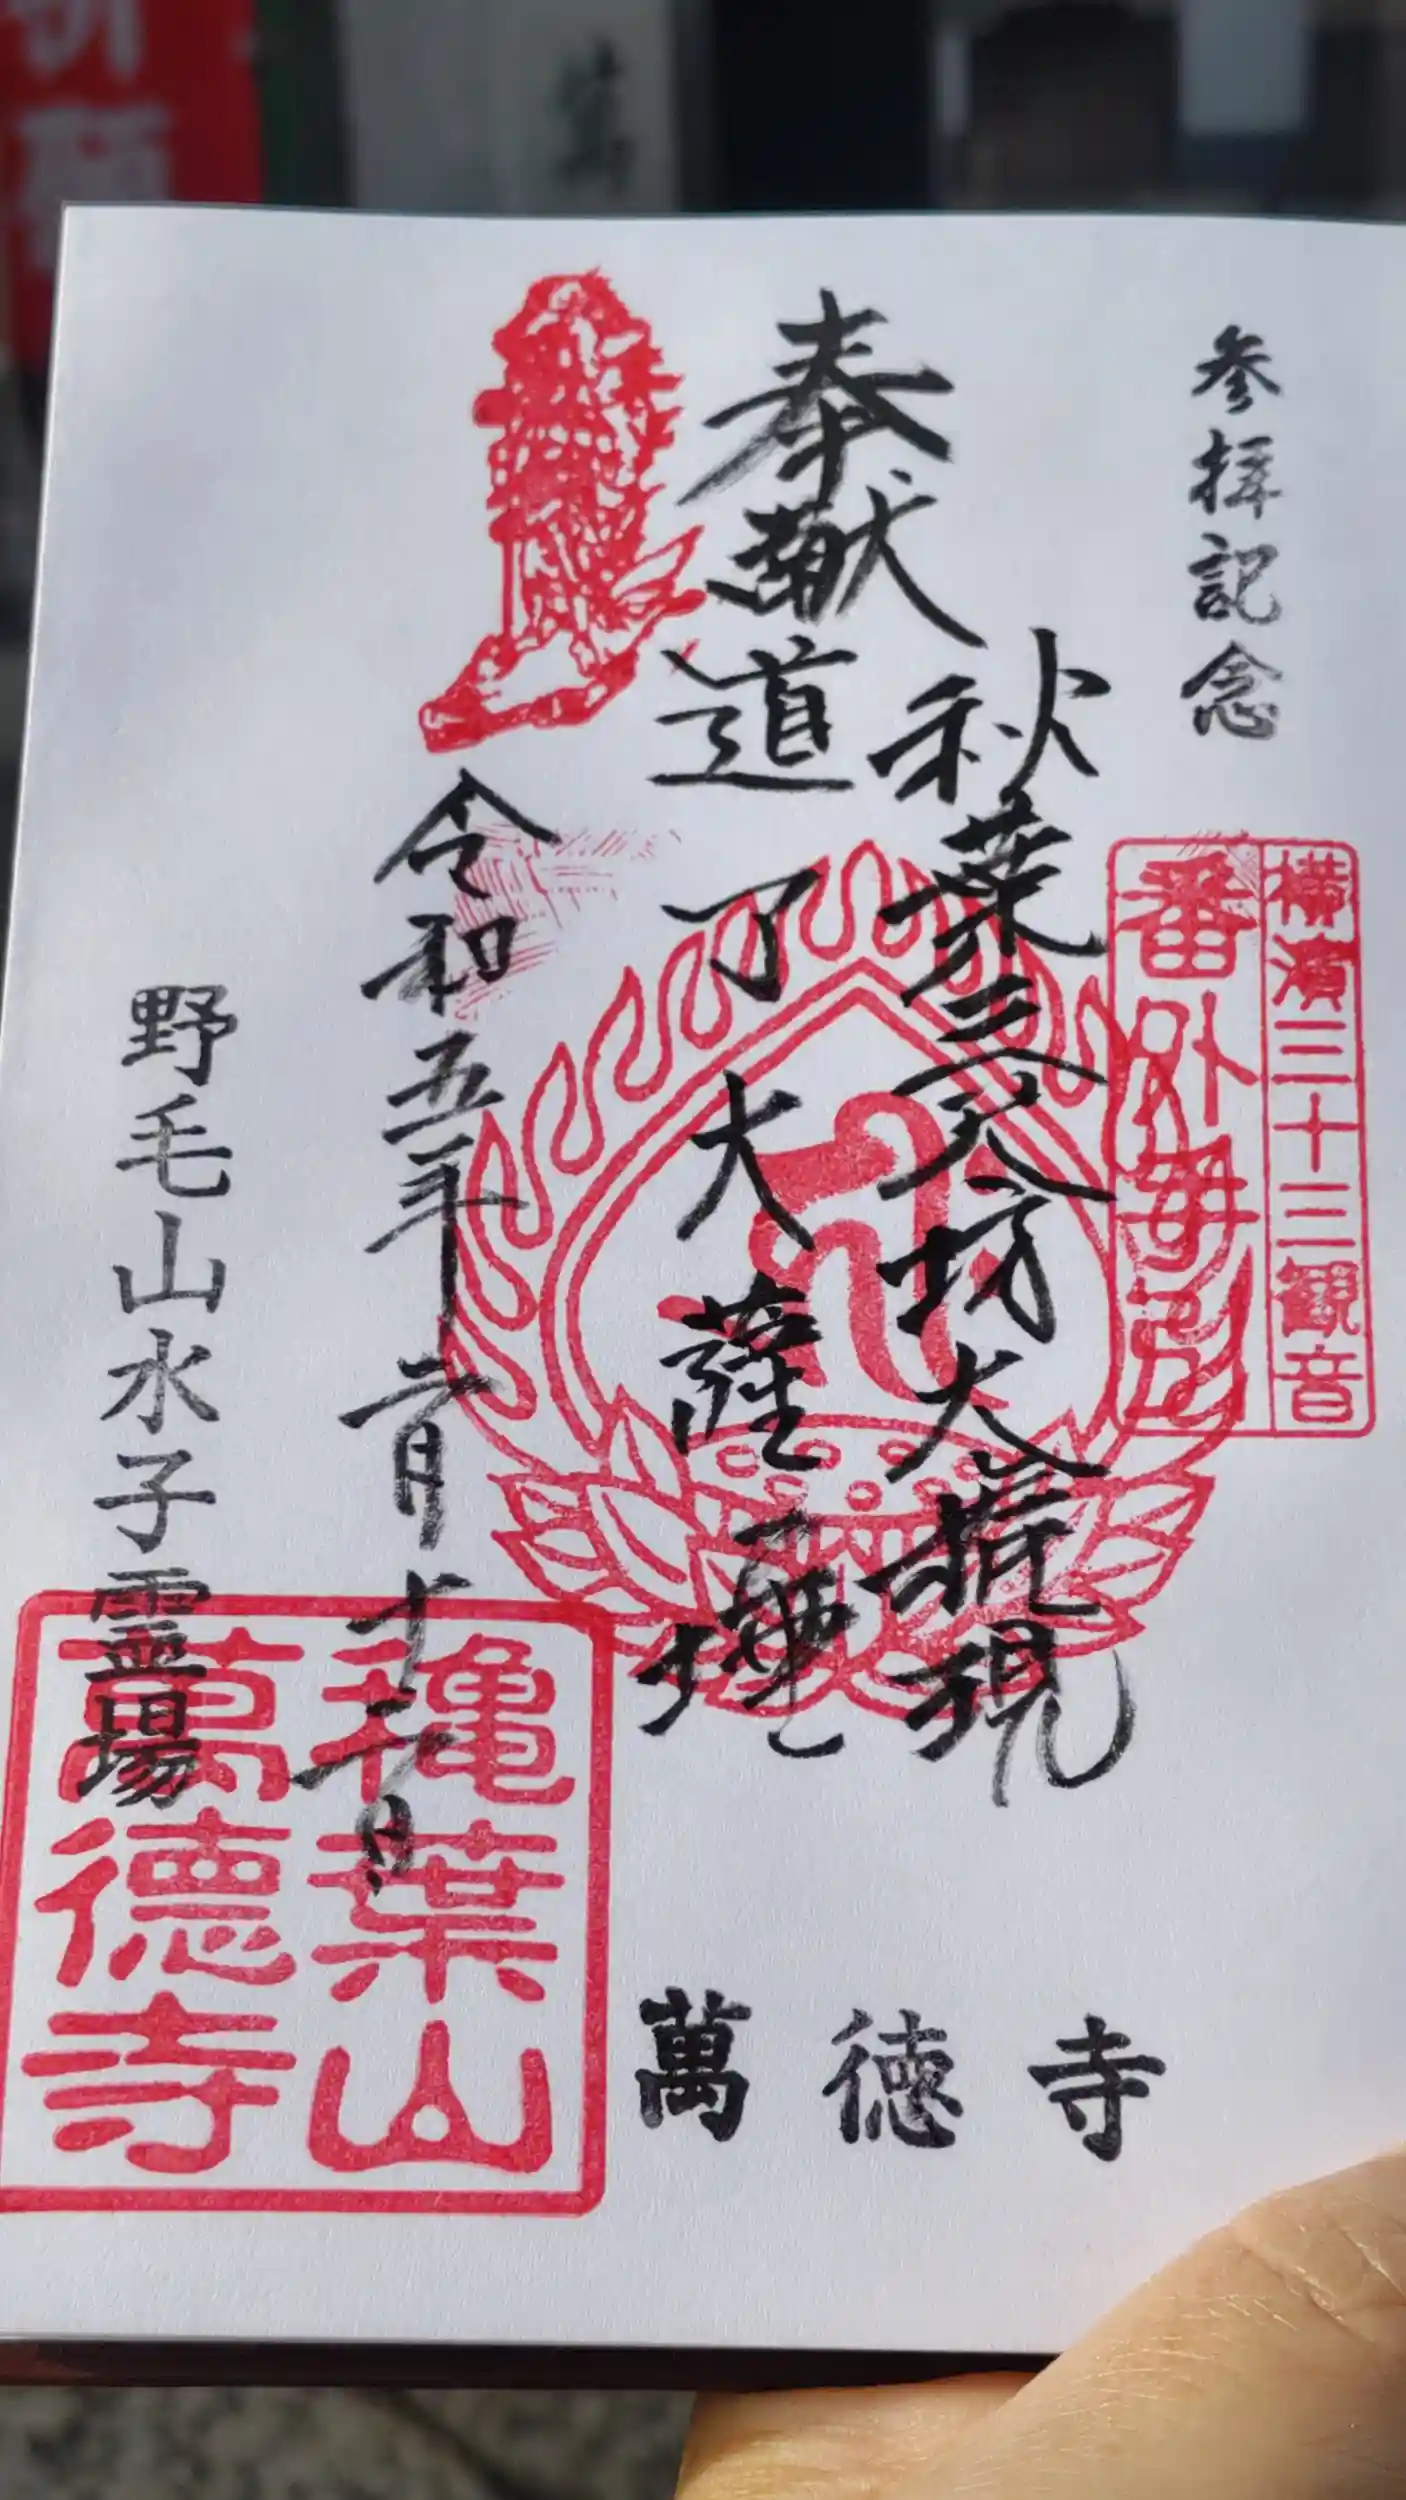 参拝記念
横濱三十三観音
番外
秋葉三尺坊大権現
奉献道了大薩埵
令和五年二月十二日
野毛山水子霊場
萬徳寺
亀葉山
萬徳寺